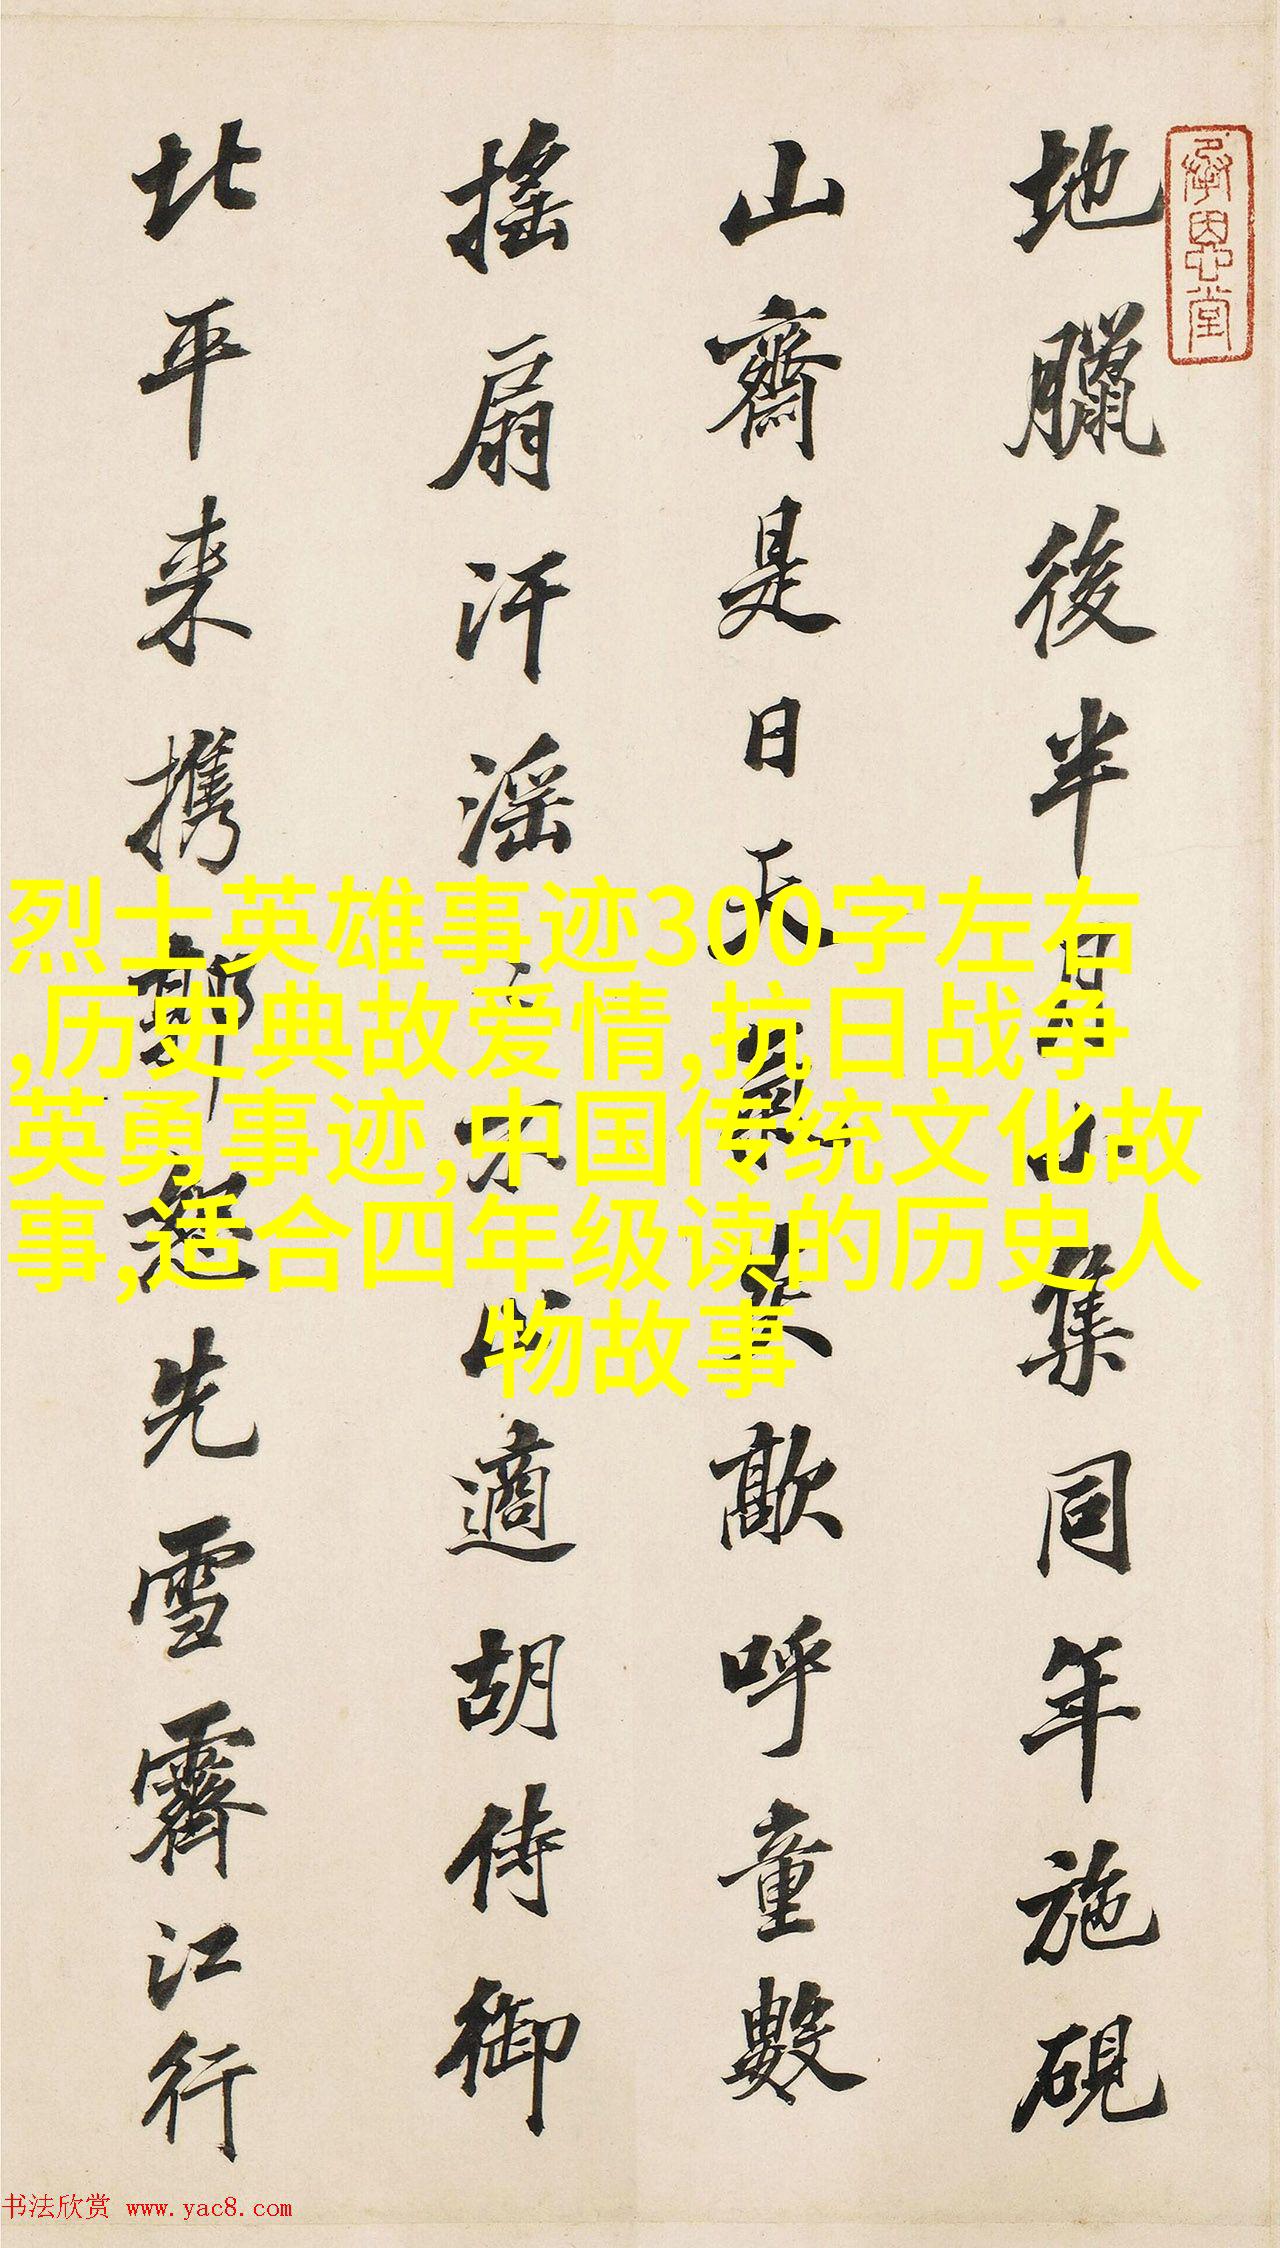 承恩堂
地臘後半月小集同年施硯
山齋是日天氣炎歊呼童數
搖扇汗滛不止適胡侍御
北平来携郭恕先雪霽江行
烈士英雄事迹300字左右
,历史典故爱情,抗日战争
英勇事迹,中国传统文化故
事,适合四年级读的历史人
物故事
书法欣赏 www.yac8.com